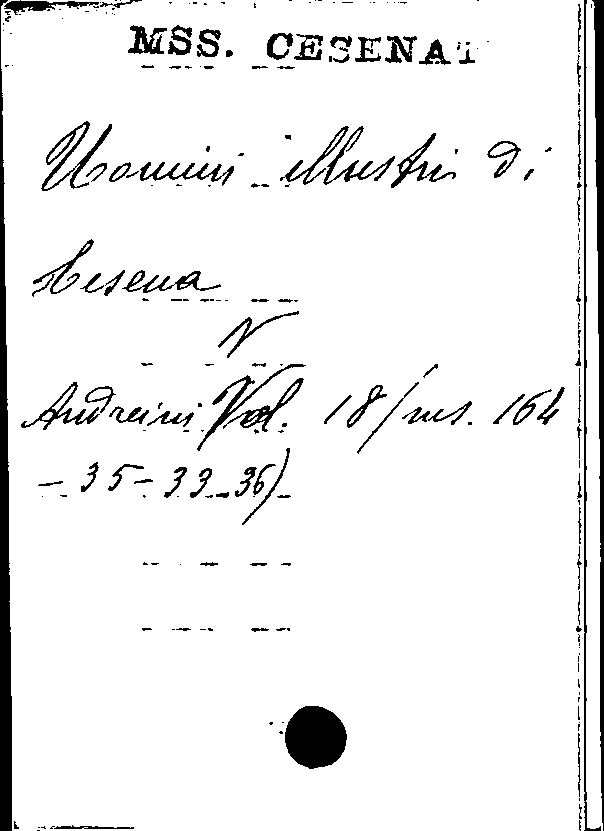 MSS. CESENAT
Uomini illustri di
Cesena
V
Andreini Vol. 18/ms. 164
- 35 - 33 - 36)